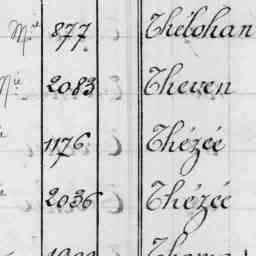 Mie 877 Thébohan
Mie 2083 Theven
1176 Thézée
2036 Thézée